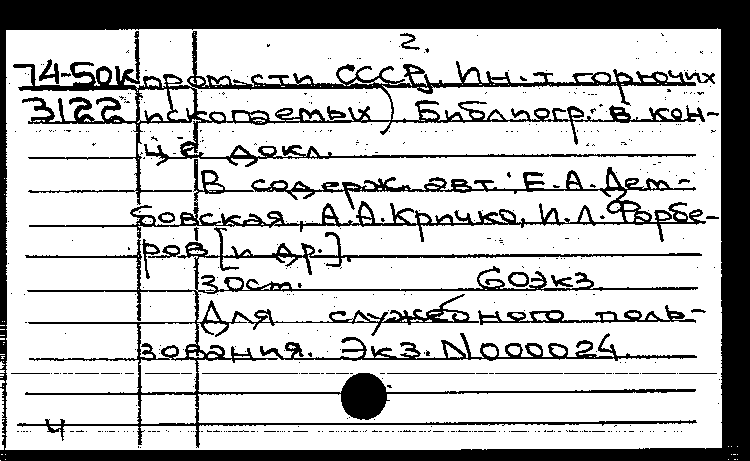 2.
74-50к пром-сти СССР, Ин-т горючих
3122 ископаемых). Библиогр. в кон-
це докл.
В содерж. авт.: Е.А. Дем-
бовская, А.А. Кричко, И.Л. Фарбе-
ров [и др.].
30ст. 60экз.
Для служебного поль-
зования. Экз. N000024.
4